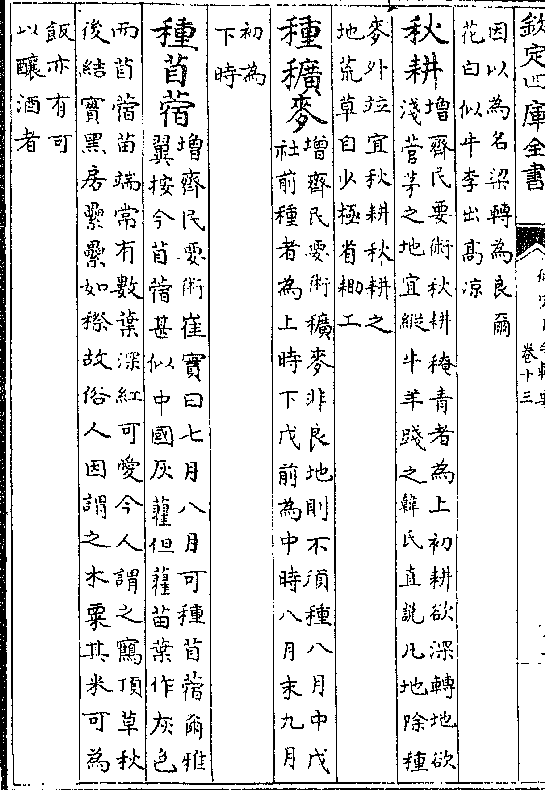 欽定四庫全書
卷十三
因以為名梁轉為良爾
花白似牛李出髙凉
秋耕
增齊民要術秋耕䅖青者為上初耕欲深轉地欲
淺菅茅之地宜縱牛羊踐之韓氏直說凡地除種
麥外竝宜秋耕秋耕之
地荒草自少極省耡工
種穬麥
增齊民要術穬麥非良地則不須種八月中戊
社前種者為上時下戊前為中時八月末九月
初為
下時
種苜蓿
增齊民要術崔寔曰七月八月可種苜蓿爾雅
翼按今苜蓿甚似中國灰藋但藋苗葉作灰色
而苜蓿苗端常有數葉深紅可愛今人謂之鶴頂草秋
後結實黑房纍纍如穄故俗人因謂之木粟其米可為
飯亦有可
以釀酒者